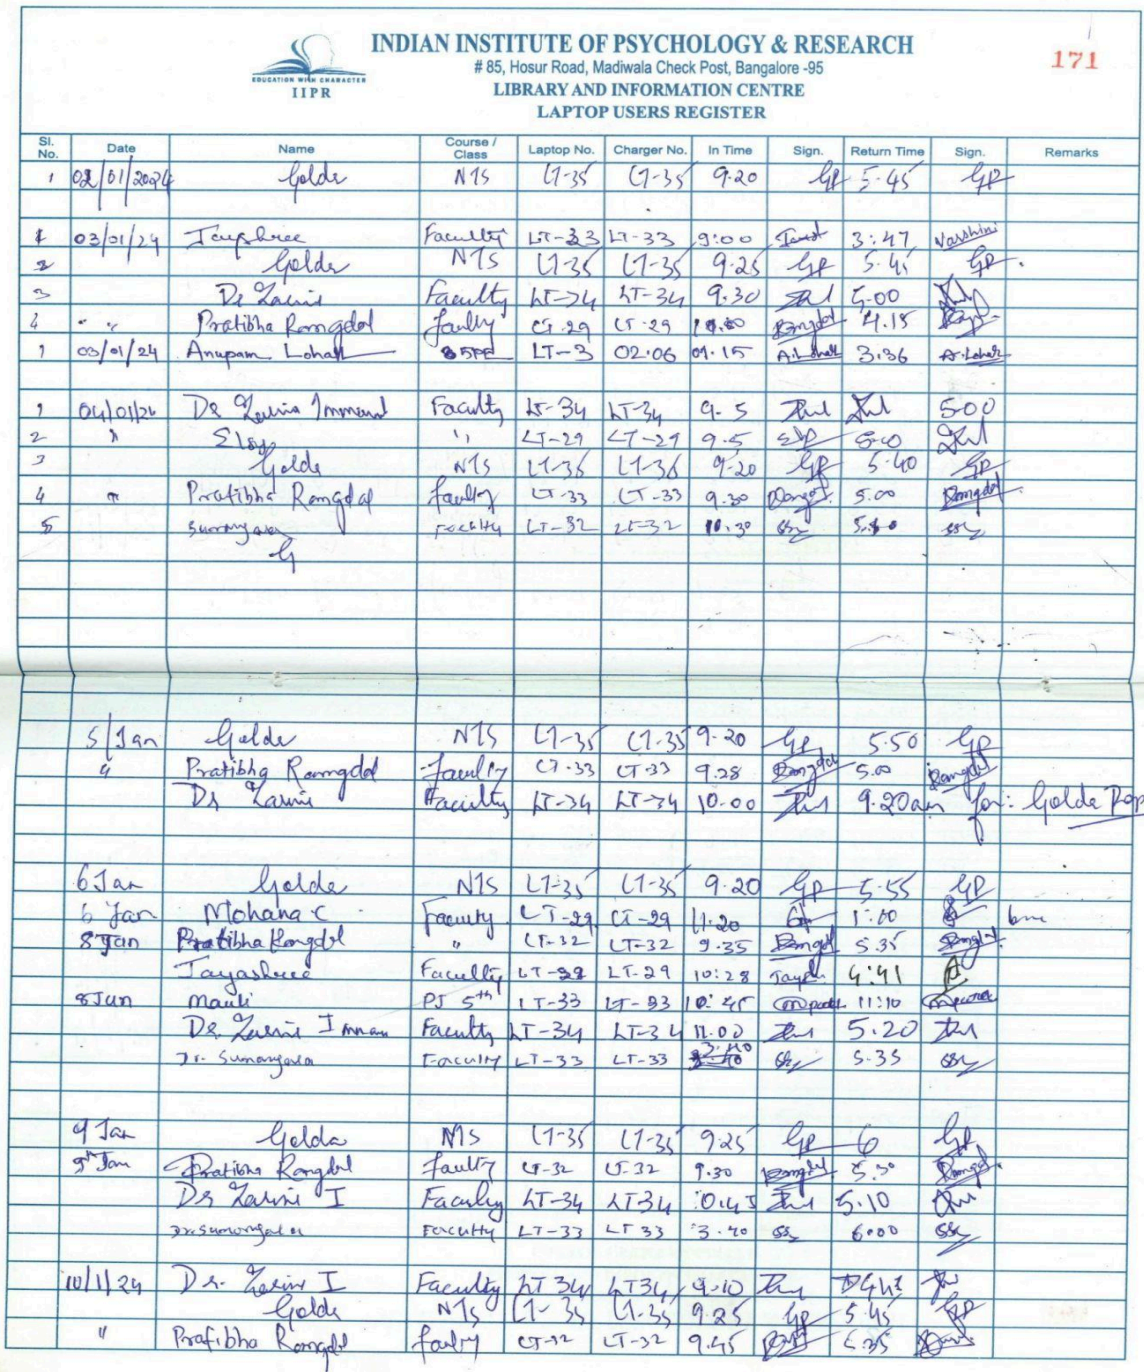 INDIAN INSTITUTE OF PSYCHOLOGY & RESEARCH
171
# 85, Hosur Road, Madiwala Check Post, Bangalore -95
EDUCATION WITH CHARACTER
IIPR
LIBRARY AND INFORMATION CENTRE
LAPTOP USERS REGISTER
Sl. No. Date Name Course / Class Laptop No. Charger No. In Time Sign. Return Time Sign. Remarks
1 02/01/2024 Golda NTS LT-35 LT-35 9.20 GP 5.45 GP
1 03/01/24 Jayshree Faculty LT-33 LT-33 9:00 3:47 Varshini
2 Golda NTS LT-35 LT-35 9.25 GP 5.45 GP
3 Dr Zarine Faculty LT-34 LT-34 9.30 5.00
4 " " Pratibha Rangdal faculty LT-29 LT-29 4.15
1 03/01/24 Anupam Lohar LT-3 02.06 01.15 A.Lohar 3.36 A.Lohar
1 04/01/24 Dr Zarine Faculty LT-34 LT-34 9.5 5.00
2 " Elsy " LT-29 LT-29 9.5
3 Golda NTS LT-35 LT-35 9.20 GP 5.40 GP
4 " Pratibha Rangdal faculty LT-33 LT-33 9.30 5.00 Rangdal
5 Sumangala Faculty LT-32 LT-32 10.30
G
5/Jan Golda NTS LT-35 LT-35 9.20 GP 5.50 GP
" Pratibha Rangdal faculty LT-33 LT-33 9.28 Rangdal 5.00 Rangdal
Dr Zarine Faculty LT-34 LT-34 10.00 9.20am for: Golda Pop
6 Jan Golda NTS LT-35 LT-35 9.20 GP 5.55 GP
6 Jan Mohana C Faculty LT-29 LT-29 11.20 1:00
8 Jan Pratibha Rangdal " LT-32 LT-32 9.35 Rangdal 5.35 Rangdal
Jayashree Faculty LT-29 LT-29 10:28 4:41
8 Jan Mauli PJ 5th LT-33 LT-33 10:45 11:10
Dr. Zarine Faculty LT-34 LT-34 11.00 5.20
Dr. Sumangala Faculty LT-33 LT-33 3.40 5.35
9 Jan Golda NTS LT-35 LT-35 9.25 GP 6 GP
9th Jan Pratibha Rangdal faculty LT-32 LT-32 9.30 Rangdal 5.30 Rangdal
Dr Zarine I Faculty LT-34 LT34 5.10
Dr. Sumangala Faculty LT-33 LT 33 3.40 6.00
10/1/24 Dr. Zarine I Faculty LT 34 LT34 9.10
Golda NTS LT-35 LT-35 9.25 GP 5.45 GP
" Pratibha Rangdal faculty LT-32 LT-32 9.45